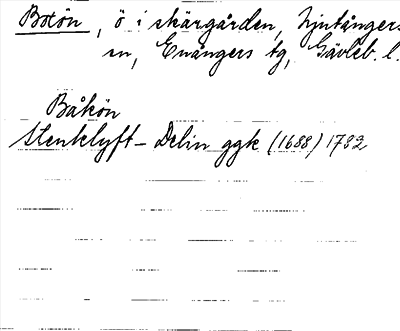 Botön, ö i skärgården, Njutångers
sn, Enångers tg, Gävleb. l.
Båkön
Stenklyft - Delin ggk (1688) 1792